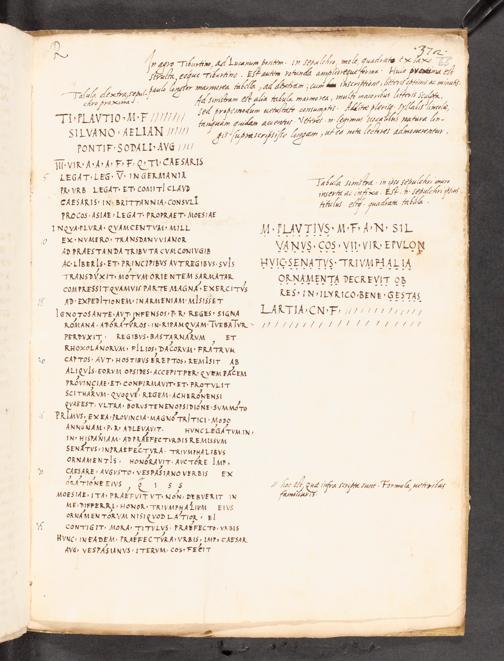 2
370
In agro Tiburtino, ad Lucanum pontem. in sepulchro, mole, quadrato ex saxo
structa, eoque Tiburtino. Est autem rotunda amplioreque forma. Huic proxima est
paulo longior marmorea tabella, ad dextram, cum inscriptione, litteris optimis ac minutis.
Ad sinistram est alia tabula marmorea, multo maioribus litteris sculpta,
sed propemodum vetustate consumptis.
Tabula dextra, sepulchro proxima.
TI·PLAVTIO·M·F
SILVANO·AELIAN
PONTIF·SODALI·AVG
III·VIR·A·A·A·F·F·Q·TI·CAESARIS
5 LEGAT·LEG·V·IN GERMANIA
PR·VRB LEGAT·ET·COMITI CLAVD
CAESARIS·IN·BRITTANNIA·CONSVLI
PROCOS·ASIAE·LEGAT·PROPRAET·MOESIAE
INQVA·PLVRA·QVAM CENTVM·MILL
10 EX·NVMERO·TRANSDANVVIANOR
AD PRAESTANDA TRIBVTA CVM CONIVGIB
AC·LIBERIS·ET·PRINCIPIBVS AVT REGIBVS·SVIS
TRANSDVXIT·MOTVM ORIENTEM SARMATAR
COMPRESSIT QVAMVIS PARTE MAGNA·EXERCITVS
15 AD·EXPEDITIONEM·IN ARMENIAM·MISISSET
IGNOTOS ANTE·AVT INFENSOS·P·R·REGES·SIGNA
ROMANA·ADORATVROS·IN·RIPAM QVAM·TVEBATVR
PERDVXIT· REGIBVS·BASTARNARVM ET
RHOXOLANORVM·FILIOS·DACORVM·FRATRVM
20 CAPTOS·AVT·HOSTIBVS EREPTOS·REMISIT AB
ALIQVIS·EORVM OPSIDES·ACCEPIT PER·QVEM PACEM
PROVINCIAE·ET·CONFIRMAVIT·ET·PROTVLIT
SCITHARVM·QVOQVE·REGEM·ACHERONENSI
QVAE EST·VLTRA·BORVSTENEN OPSIDIONE·SVMMOTO
25 PRIMVS·EX EA·PROVINCIA·MAGNO TRITICI·MODO
ANNONAM·P·R·ADLEVAVIT· HVNC LEGATVM IN·
IN·HISPANIAM·AD PRAEFECT VRBIS REMISSVM
SENATVS·IN PRAEFECTVRA·TRIVMPHALIBVS
ORNAMENTIS· HONORAVIT·AVCTORE IMP·
30 CAESARE·AVGVSTO·VESPASIANO VERBIS EX
ORATIONE EIVS Q I S S
MOESIAE·ITA·PRAEFVIT VT·NON·DEBVERIT IN
ME·DIFFERRI·HONOR·TRIVMPHALIVM EIVS
ORNAMENTORVM NISI QVOD LATIOR·EI
35 CONTIGIT·MORA·TITVLVS·PRAEFECTO·VRBIS
HVNC·IN EADEM·PRAEFECTVRA·VRBIS·IMP·CAESAR
AVG·VESPASIANVS·ITERVM·COS·FECIT
Tabula sinistra. in ipso sepulchri muro
inserta ac infixa.
titulus. estque quadrata tabula.
M·PLAVTIVS·M·F·A·N·SIL
VANVS·COS·VII·VIR·EPVLON
HVIC·SENATVS·TRIVMPHALIA
ORNAMENTA DECREVIT OB
RES·IN·ILYRICO·BENE·GESTAS
LARTIA·CN·F
hoc est, quae infra scripta sunt. Formula, vetribus
familiaris.